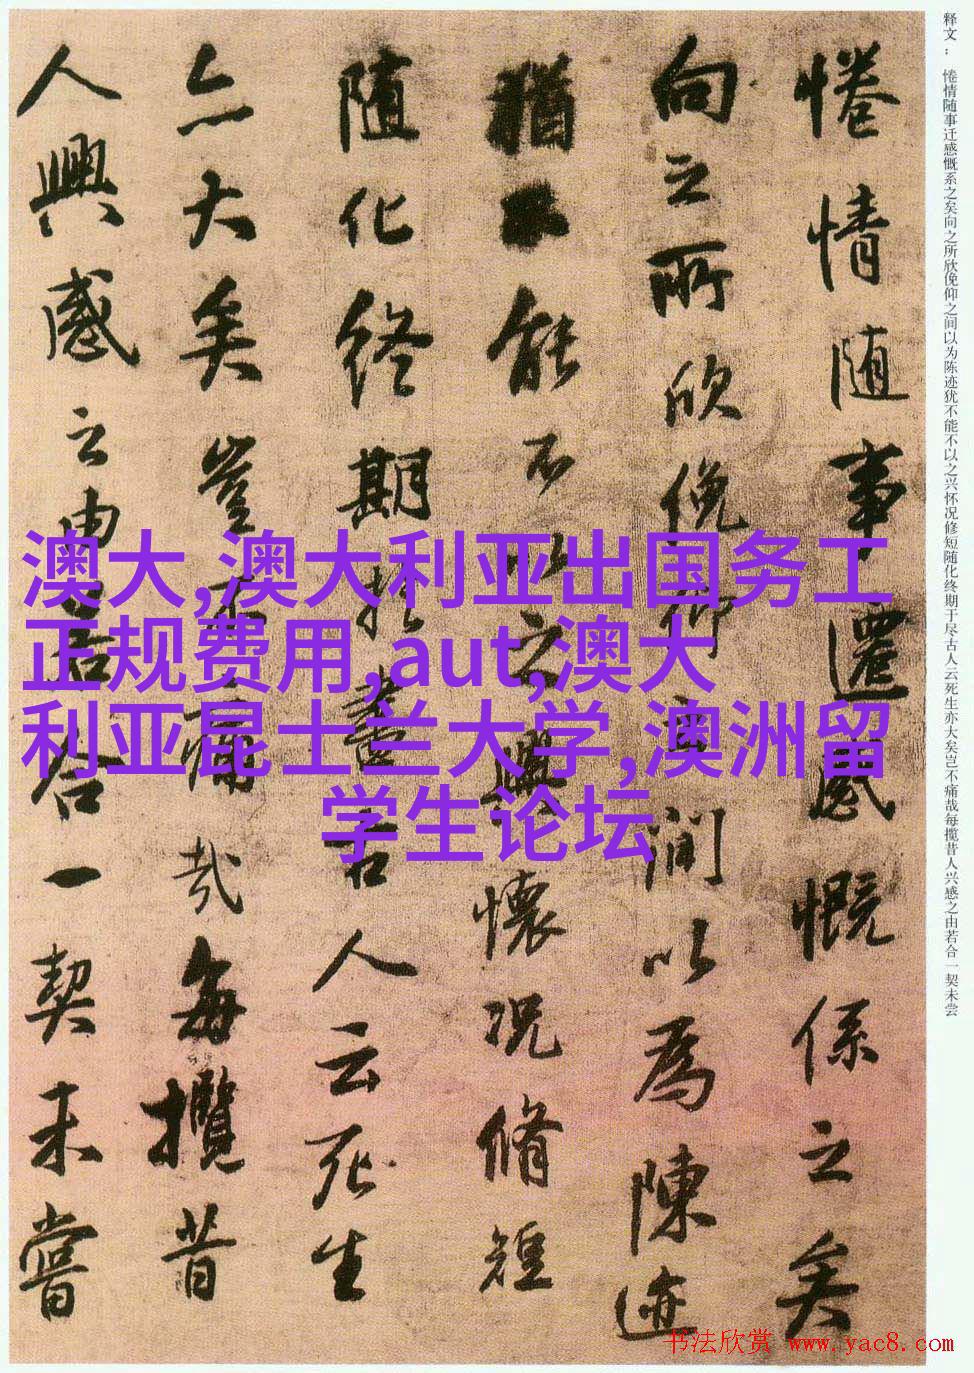 释文：惓情随事迁感慨系之矣向之所欣俛仰之间以为陈迹犹不能不以之兴怀况修短随化终期于尽古人云死生亦大矣岂不痛哉每揽昔人兴感之由若合一契未尝
惓情随事遷感慨係之矣
向之所欣俛仰之間以為陳迹
猶不能不以之興懷况脩短
随化終期於盡古人云死生
亦大矣豈不痛哉每攬昔
人興感之由若合一契未嘗
澳大,澳大利亚出国务工
正规费用,aut,澳大
利亚昆士兰大学,澳洲留
学生论坛
书法欣赏 www.yac8.com